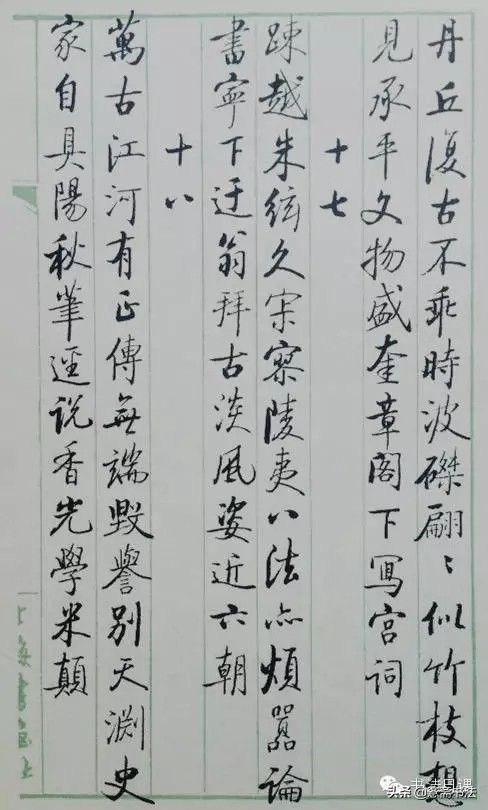 丹丘復古不乖時波磔翩〻似竹枝想
見承平文物盛奎章閣下寫宫词
十七
疎越朱絃久宗寮陵夷八法亦煩囂論
書寧下迂翁拜古淡风姿近六朝
十八
萬古江河有正傳無端毀譽别天淵史
家自具陽秋筆逕说香光學米顛
头条
书法网课